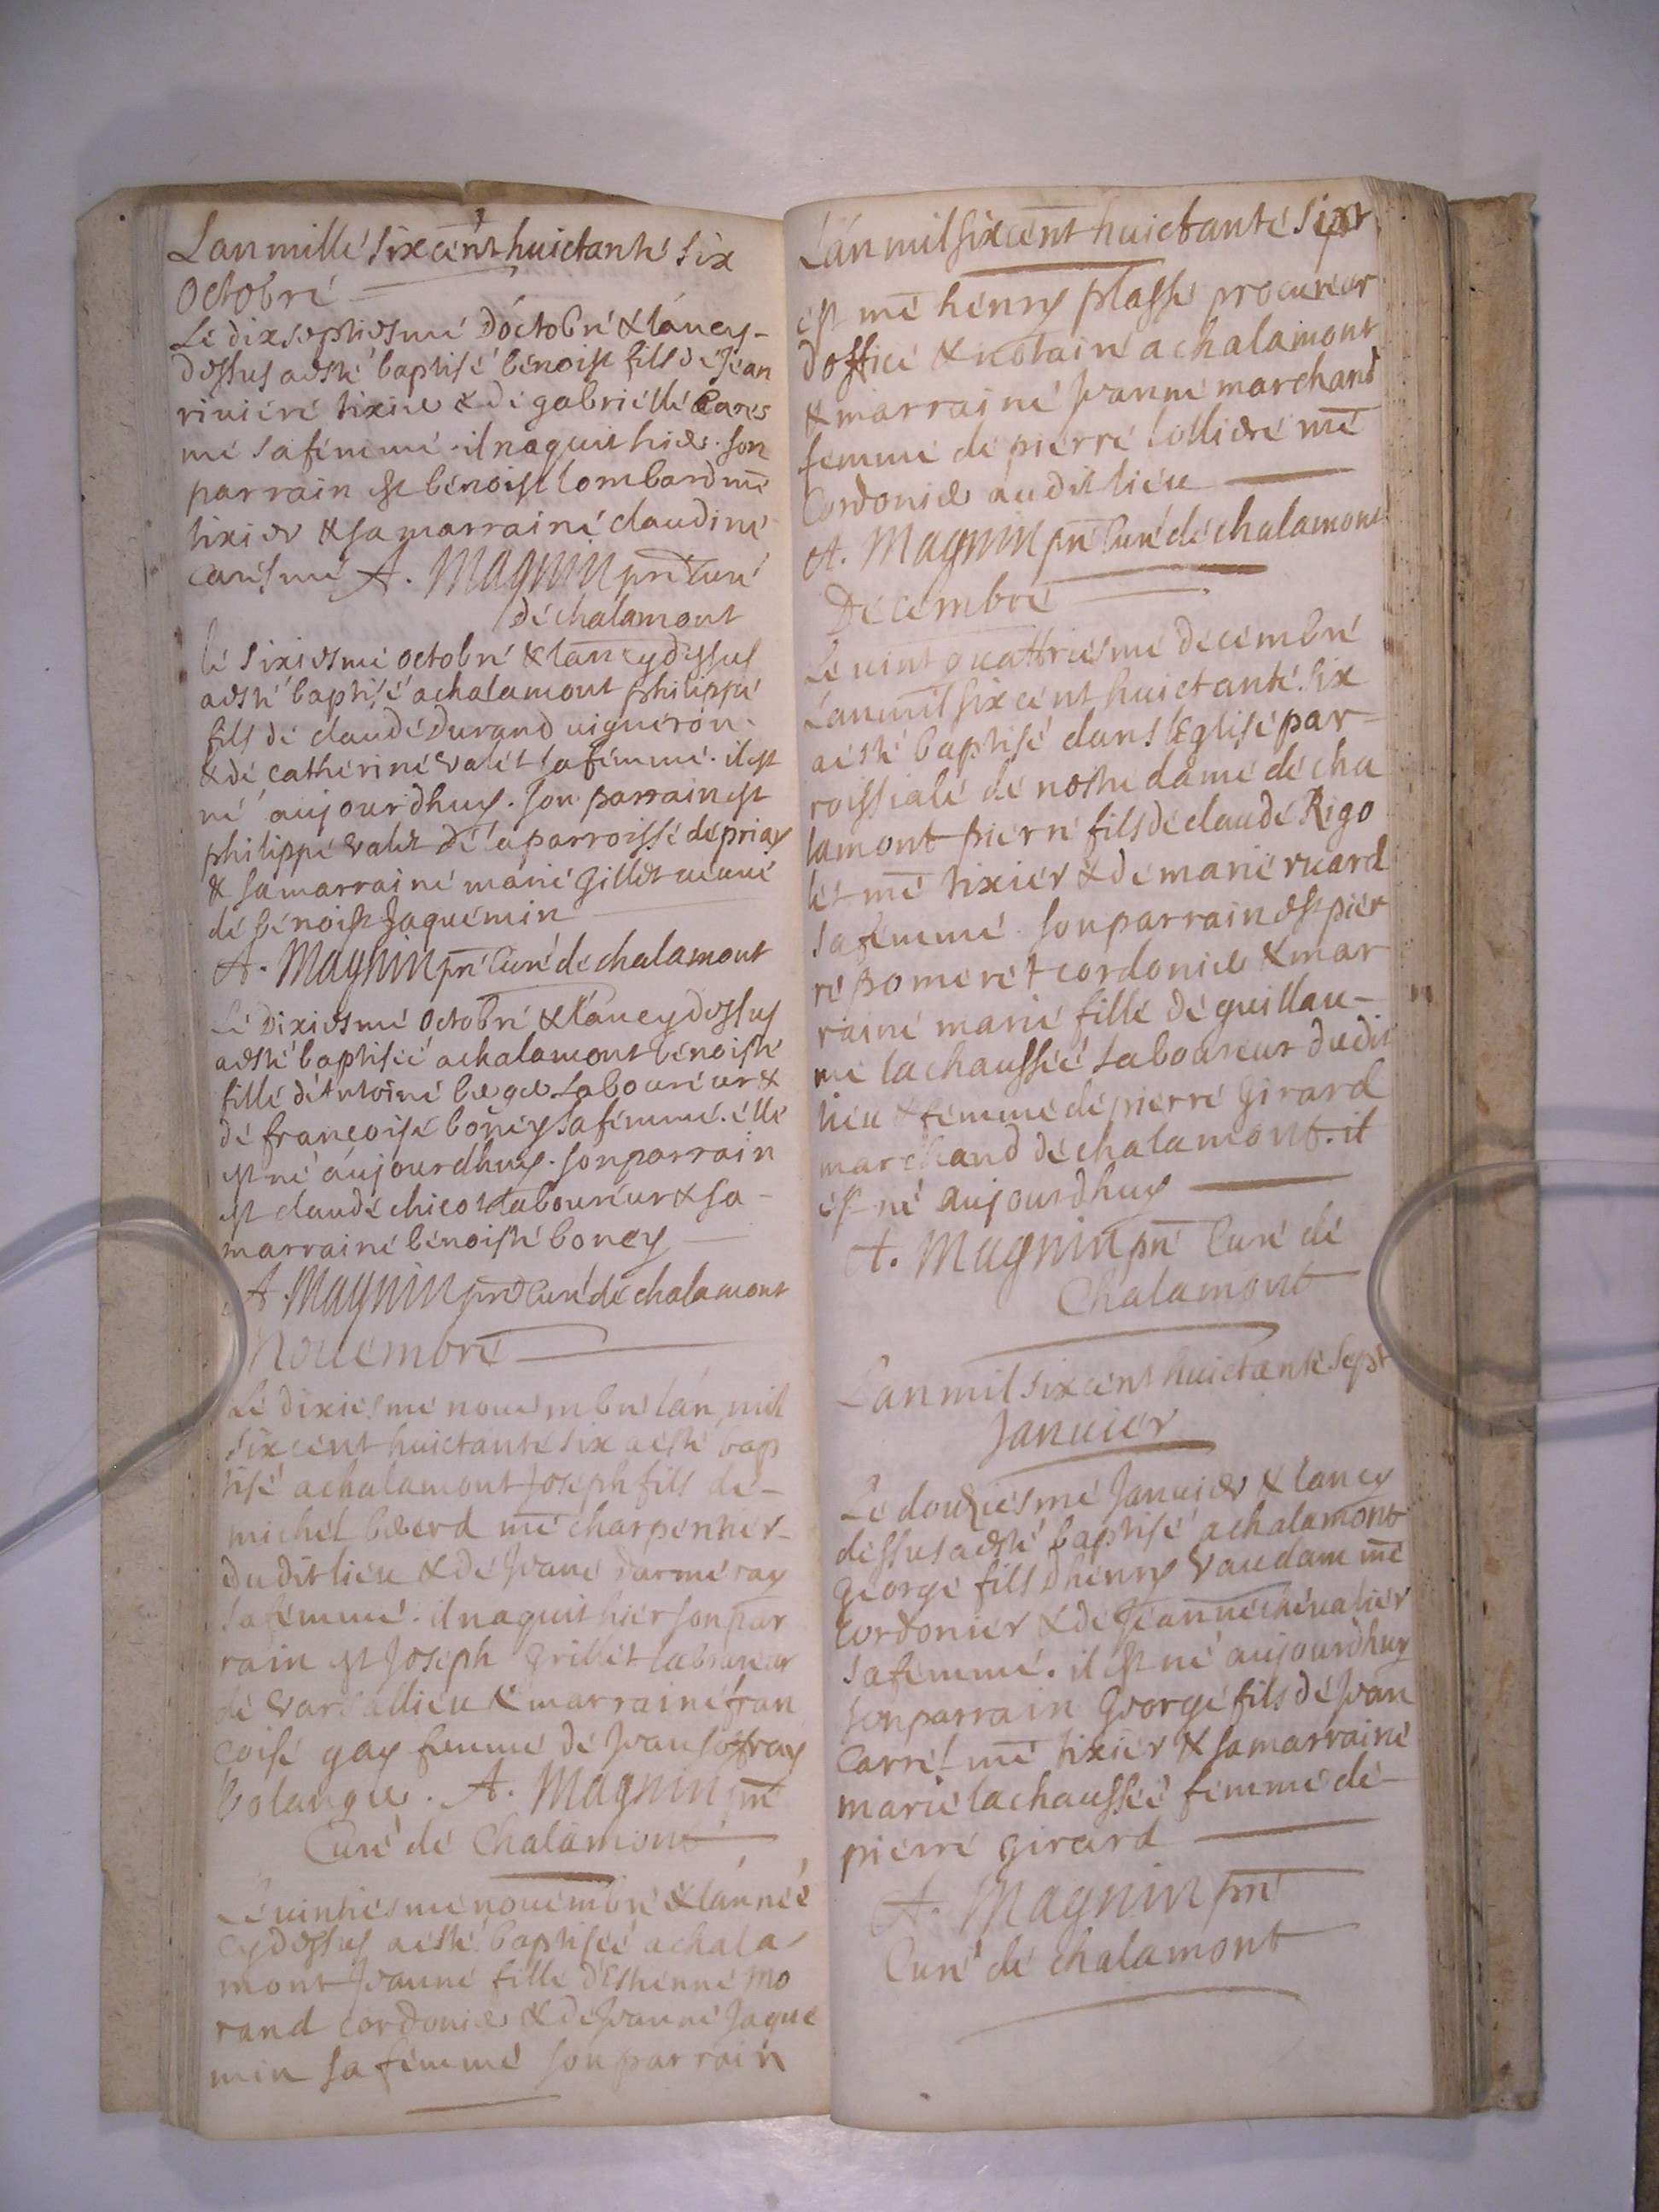 Lan mille six cent huictante six
Octobre
Le dixseptiesme doctobre & lan cy-
dessus a esté baptisé benoist fils de Jean
riviere tixier & de gabrielle Cares
me sa femme. il naquit hier. son
parrain est benoist lombard me
tixier & sa marraine claudine
caresme A. Magnin pre Curé
de chalamont
le sixiesme octobre & lan cy dessus
a esté baptisé a chalamont philippe
fils de claude Durand vigneron.
& de catherine valet sa femme. il est
né aujourdhuy. son parrain est
philippe valet de la parroisse de priay
& sa marraine marie Gillet veuve
de benoist Jaquemin
A. Magnin pre Curé de chalamont
Le Dixiesme octobre & lan cy dessus
a esté baptisée a chalamont benoiste
fille d'Antoine laboureur &
de francoise boney sa femme. elle
est né aujourdhuy. son parrain
est claude laboureur & sa
marraine benoiste boney
A. Magnin pre Curé de chalamont
Novembre
Le dixiesme novembre lan mil
six cent huictante six a esté bap
tisé a chalamont Joseph fils de
michel me charpentier
du dit lieu & de Jeane
sa femme. il naquit hier son par
rain est Joseph Grillet laboureur
de & marraine fran
coise gay femme de Jean Joffray
bolanger. A. Magnin pre
Curé de Chalamont
Le vintiesme novembre & lannéé
cy dessus a esté baptiséé a chala
mont Jeanne fille d'Estienne mo
rand cordonier & de Jeanne Jaque
min sa femme son parrain
Lan mil six cent huictante
est me henry plasse procureur
doffice & notaire a chalamont
& marraine Jeanne marchand
femme de pierre me
Cordonier audit lieu
A. Magnin pre Curé de chalamont
Decembre
Le vint quattriesme decembre
Lan mil six cent huictante six
a esté baptisé dans leglise par
roissiale de nostre dame de cha
lamont pierre fils de claude Rigo
let me tixier & de marie ruard
sa femme son parrain est pier
re pomeret cordonier & mar
raine marie fille de guillau-
me lachaussée Laboureur dudit
lieu & femme de pierre Girard
marchand de chalamont. il
est né aujourdhuy
A. Magnin pre Curé de
Chalamont
Lan mil six cent huictante sept
Janvier
Le douziesme Janvier & lan cy
dessus a esté baptisé a chalamont
George fils dhenry vaudam me
Cordonier & de Jeanne chevalier
sa femme. il est né aujourdhuy
son parrain George fils de Jean
Carrel me tixier & sa marraine
marie lachaussée femme de
pierre girard
A. Magnin pre
Curé de chalamont